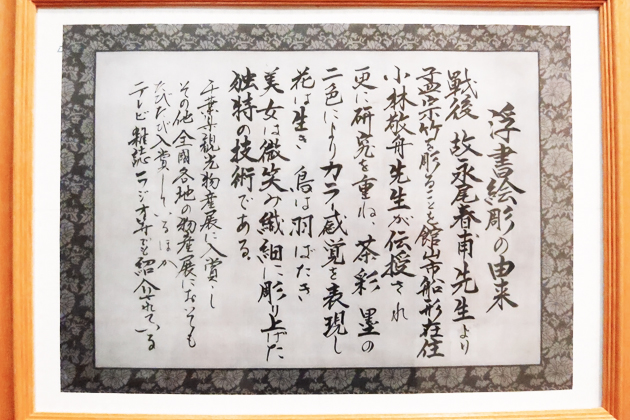 浮書絵彫の由来
戦後 故永尾春甫先生より
孟宗竹を彫ることを館山市船形在住
小林敬舟先生が伝授され
更に研究を重ね、茶彩 墨の
二色によりカラー感覚を表現し
花は生き 鳥は羽ばたき
美女は微笑み繊細に彫り上げた
独特の技術である。
千葉県観光物産展に入賞し
その他 全国各地の物産展においても
たびたび入賞しているほか
テレビ 雑誌 ラジオ等でも紹介されている